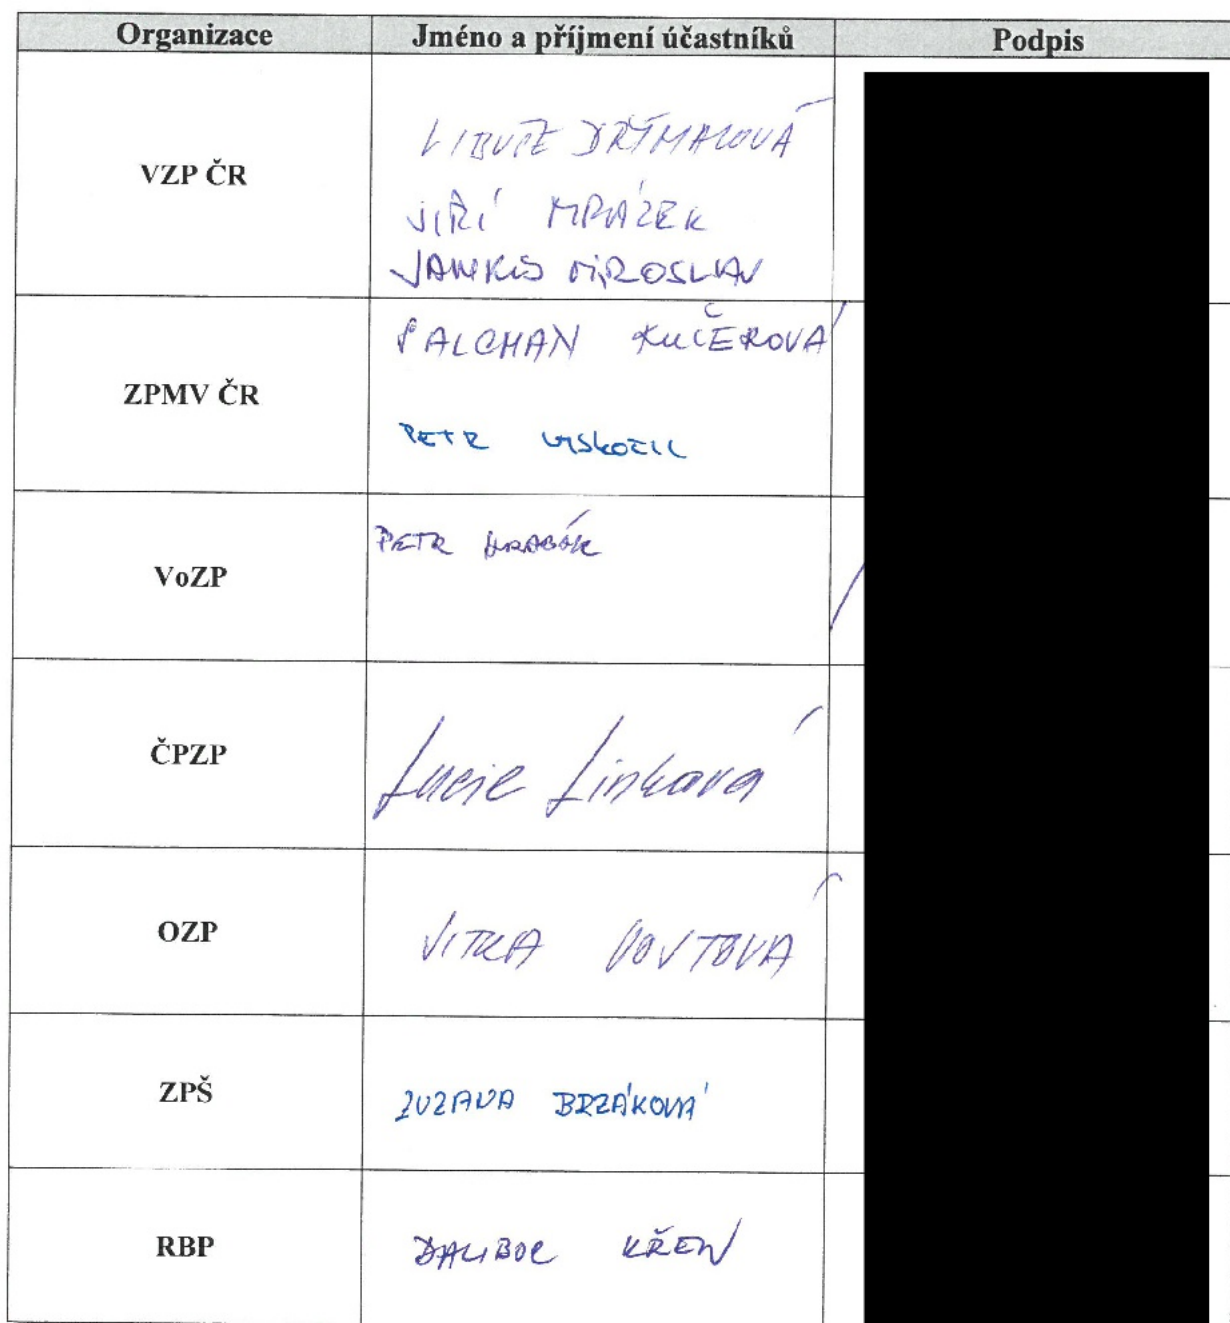 Organizace Jméno a příjmení účastníků Podpis
VZP ČR
LIBUŠE DRÝMALOVÁ
JIŘÍ MRÁZEK
MIROSLAV
ZPMV ČR
KUČEROVÁ
PETR VYSKOČIL
VoZP
PETR HRABÁK
ČPZP
Lucie Linková
OZP
JITKA VOJTOVÁ
ZPŠ
ZUZANA BRZÁKOVÁ
RBP
DALIBOR KŘEN